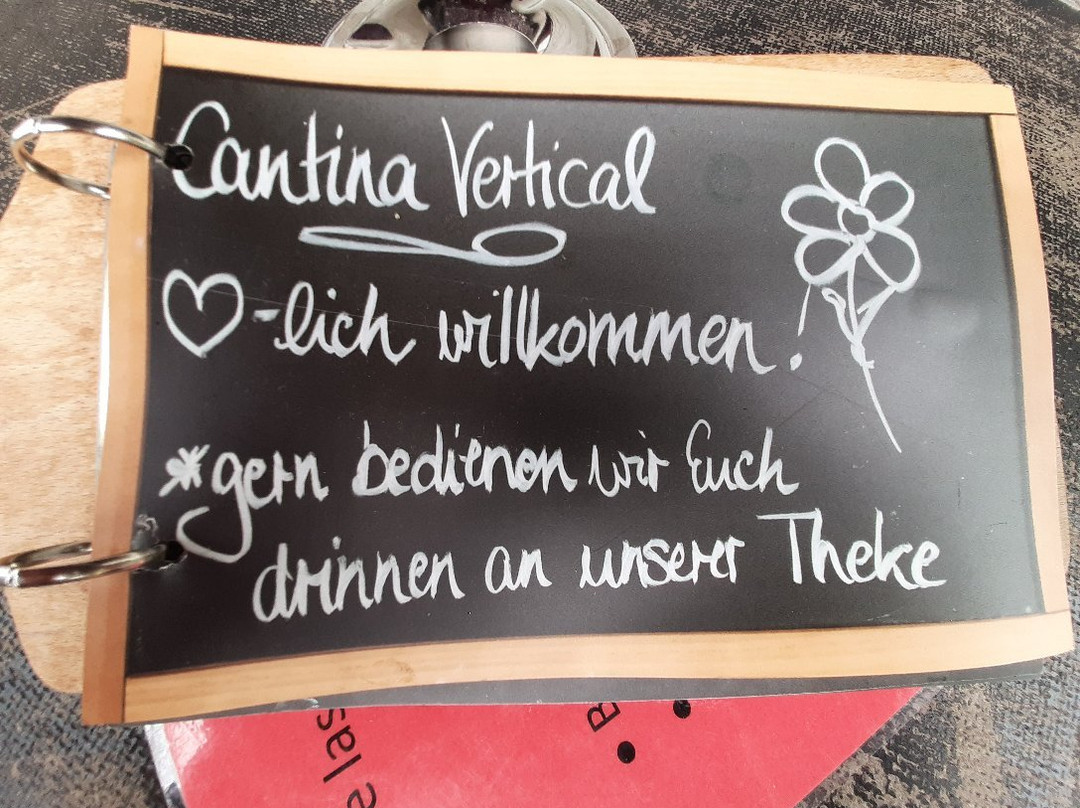 Cantina Vertical
♡-lich willkommen!
*gern bedienen wir Euch
drinnen an unserer Theke